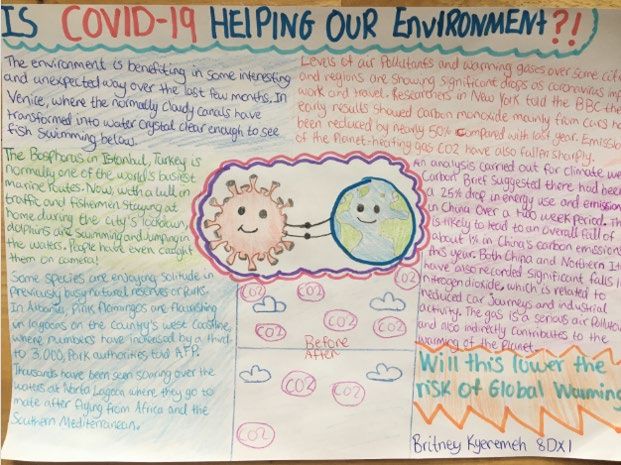 IS COVID-19 HELPING OUR EnvIRONMENT?!
The environment is benefiting in some interesting
and unexpected way over the last few months. In
Venice, where the normally cloudy canals have
transformed into water crystal clear enough to see
fish swimming below.
The Bosphorus in Istanbul, Turkey is
normally one of the world's busiest
marine routes. Now, with a lull in
traffic and fishermen staying at
home during the city's lockdown,
dolphins are swimming and jumping in
the waters. People have even caught
them on camera!
Some species are enjoying solitude in
previously busy natural reserves or parks.
In Albania, Pink flamingos are flourishing
in lagoons on the country's west coastline,
where numbers have increased by a third
to 3,000, Park authorities told AFP.
Thousands have been seen soaring over the
waters at Narta Lagoon where they go to
mate after flying from Africa and the
Southern Mediterranean.
Levels of air Pollutants and warming gases over some citi
and regions are showing significant drops as coronavirus imp
work and travel. Researchers in New York told the BBC the
early results showed carbon monoxide mainly from cars ha
been reduced by nearly 50% compared with last year. Emission
of the Planet-heating gas CO2 have also fallen sharply.
An analysis carried out for climate we
Carbon Brief suggested there had been
a 25% drop in energy use and emission
in China over a two week period. Th
is likely to lead to an overall fall of
about 1% in China's carbon emissions
this year. Both China and Northern It
have also recorded significant falls in
nitrogen dioxide, which is related to
reduced car journeys and industrial
activity. The gas is a serious air Pollutan
and also indirectly contributes to the
warming of the Planet.
CO2
CO2
CO2
CO2
CO2
CO2
CO2
Before
After
CO2
CO2
CO2
Will this lower the
risk of Global Warming
Britney Kyeremeh 8DX1